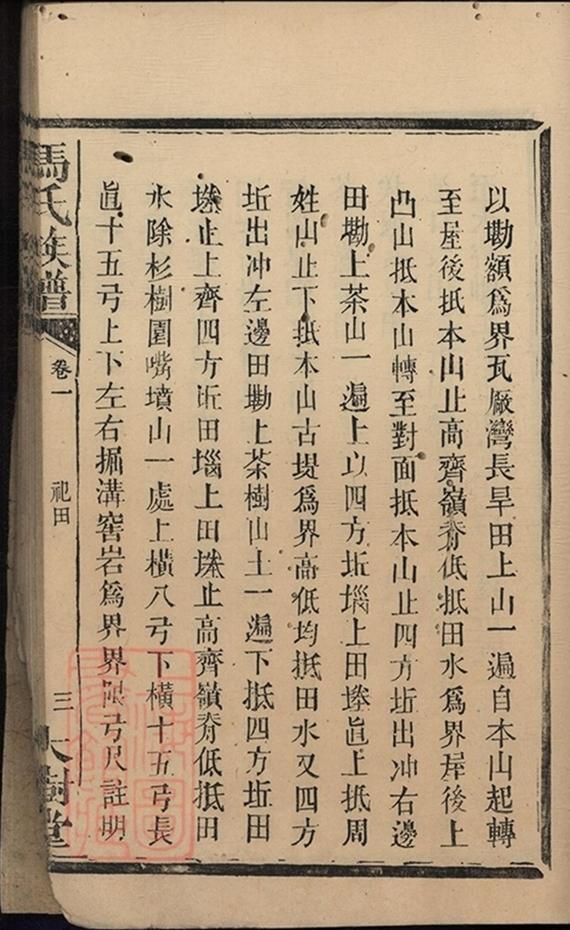 以墈額爲界瓦厰灣長旱田上山一遍自本山起轉
至屋後抵本山止高齊嶺脊低抵田水爲界屋後上
凸山抵本山轉至對面抵本山止四方坵出冲右邊
田墈上茶山一遍上以四方坵堖上田塝眞上抵周
姓山止下抵本山古堘爲界高低均抵田水又四方
坵出冲左邊田墈上茶樹山土一遍下抵四方坵田
塝止上齊四方坵田堖上田塝止高齊嶺脊低抵田
水除杉樹園嘴墳山一處上橫八弓下橫十五弓長
眞十五弓上下左右掘溝窖岩爲界界限弓尺註明
馬氏族譜
卷一
祀田
三
大樹堂